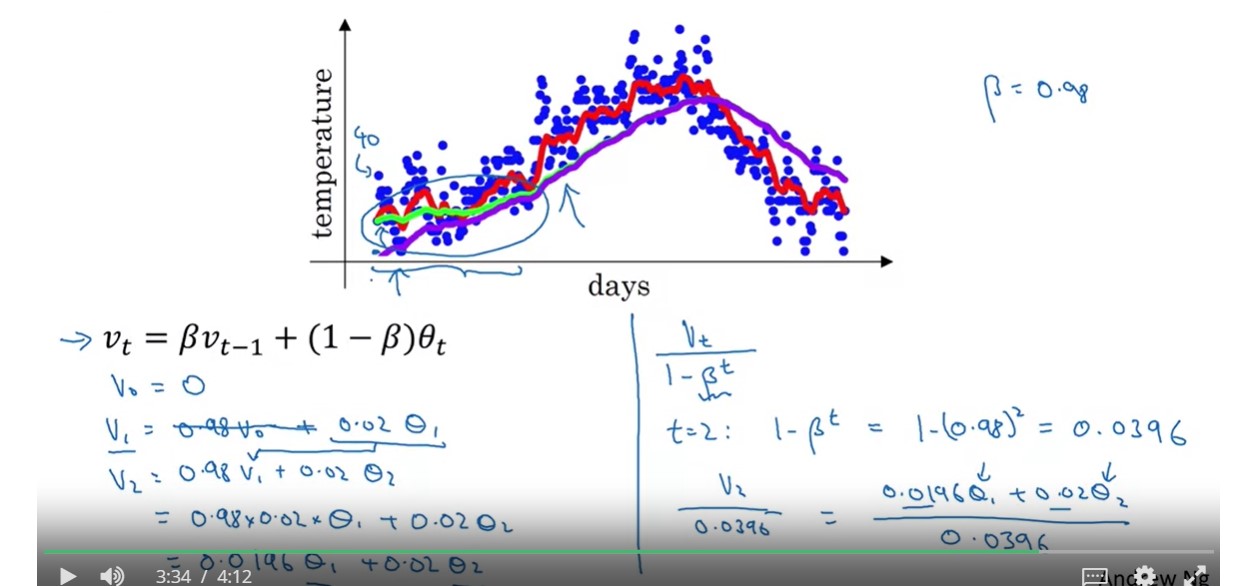 temperature
40
β = 0.98
days
→ vₜ = βvₜ₋₁ + (1 − β)θₜ
V₀ = 0
V₁ = 0.98 V₀ + 0.02 θ₁
V₂ = 0.98 V₁ + 0.02 θ₂
= 0.98 x 0.02 x θ₁ + 0.02 θ₂
= 0.0196 θ₁ + 0.02 θ₂
Vₜ
1 - βᵗ
t=2: 1 - βᵗ = 1 - (0.98)² = 0.0396
V₂
0.0396
=
0.0196 θ₁ + 0.02 θ₂
0.0396
3:34 / 4:12
Andrew Ng